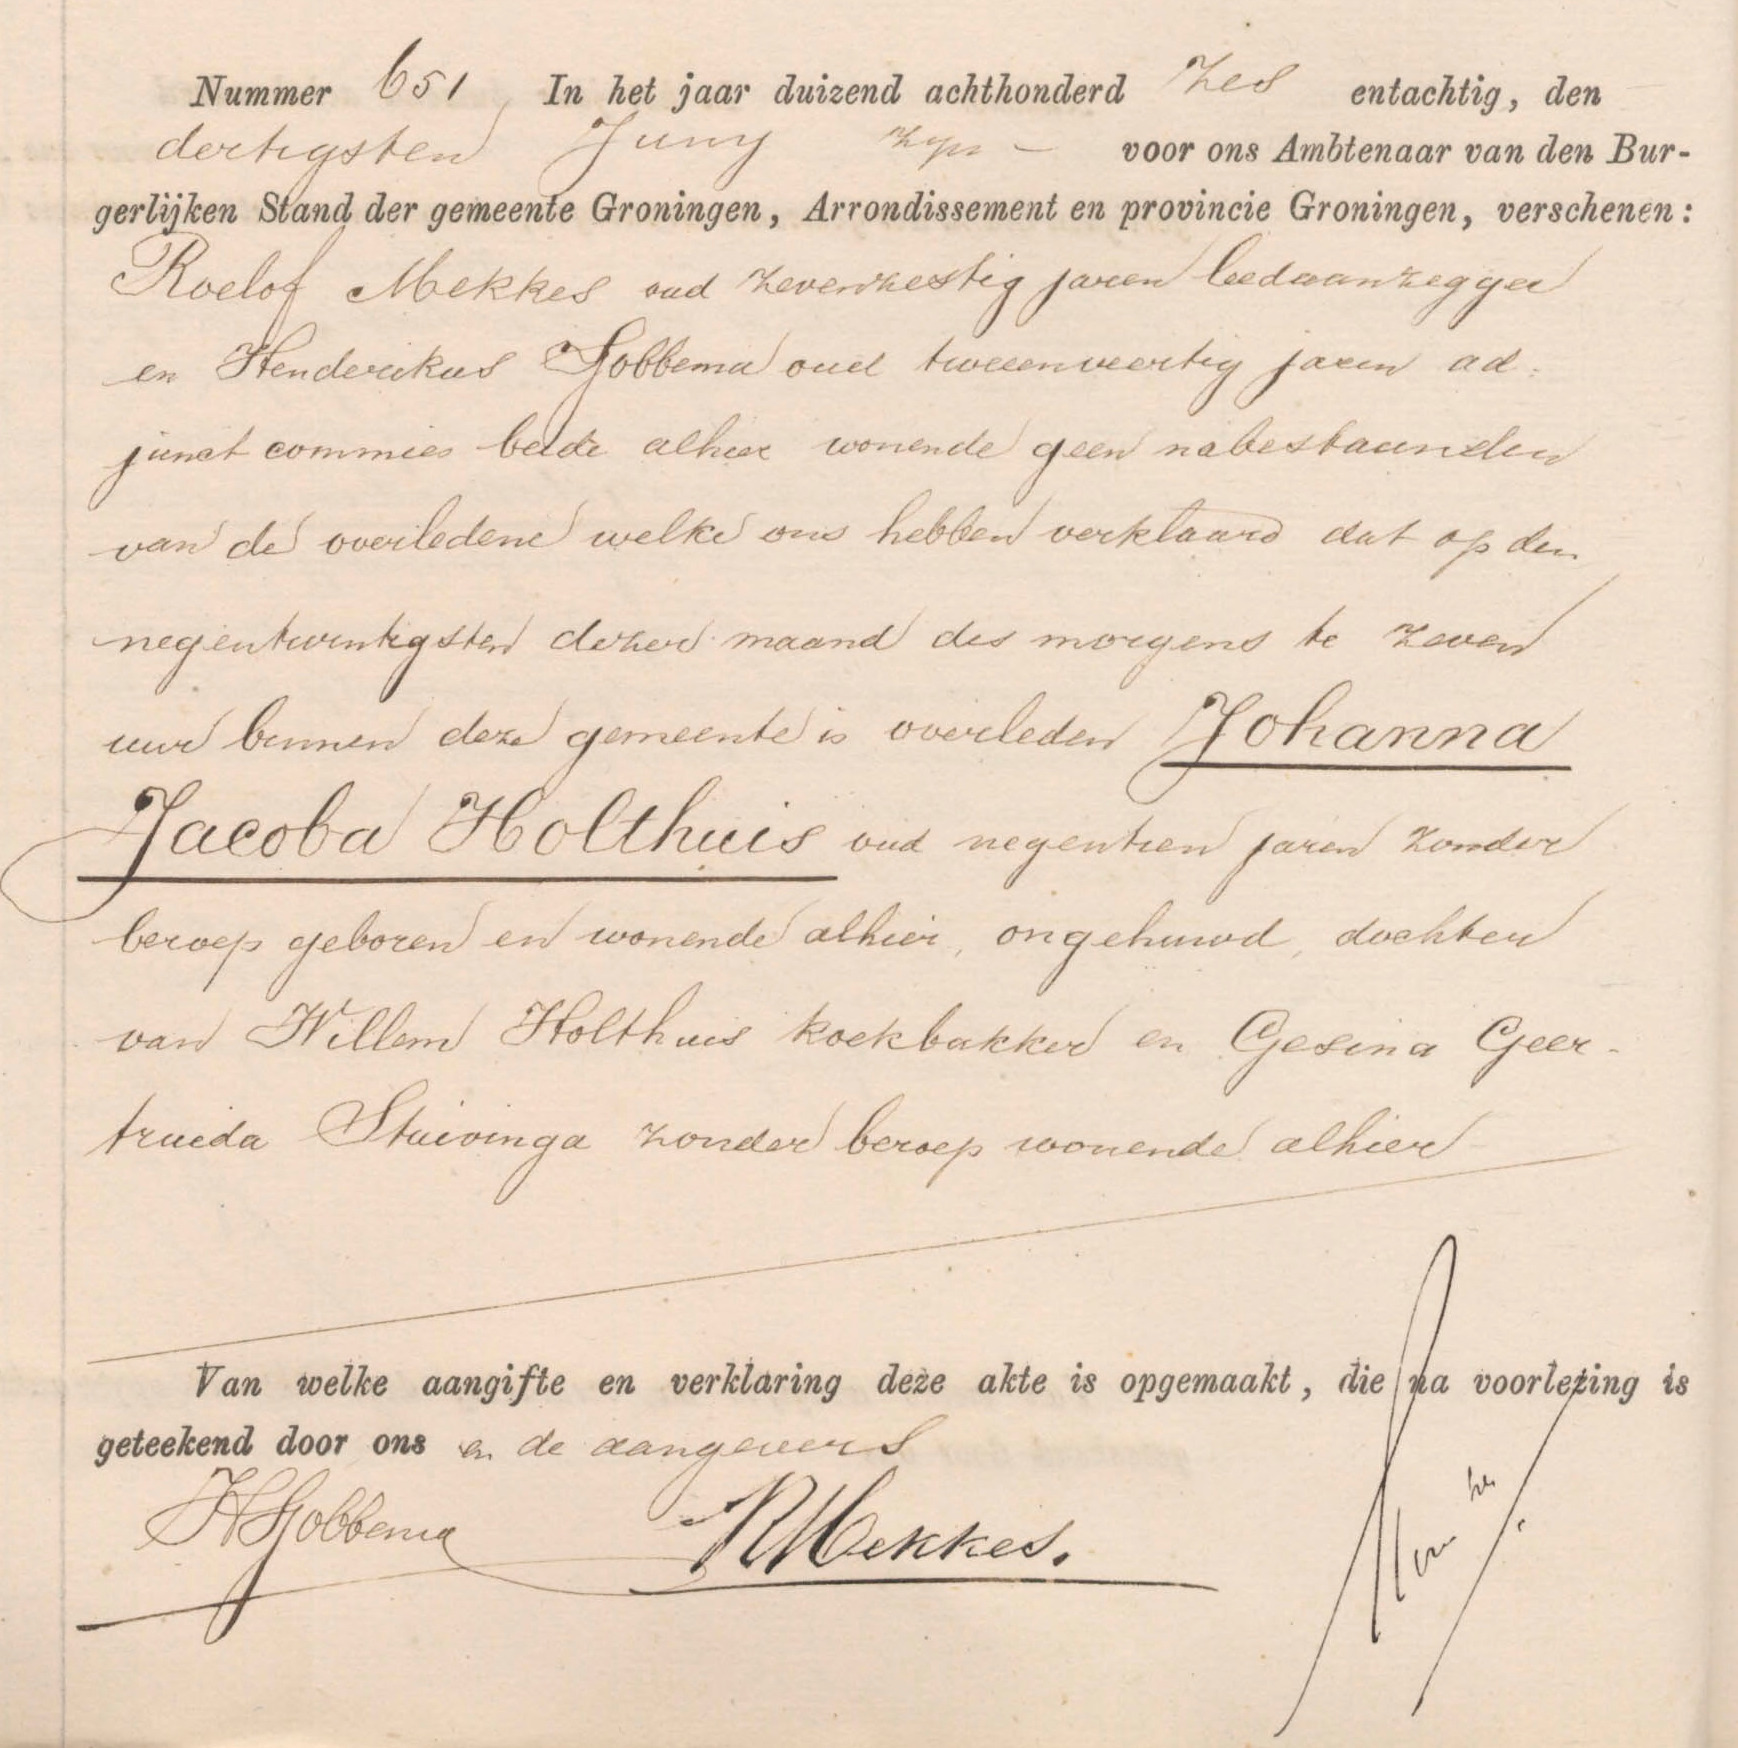 Nummer 651, In het jaar duizend achthonderd zes entachtig, den
dertigsten Juny zijn — voor ons Ambtenaar van den Bur-
gerlijken Stand der gemeente Groningen, Arrondissement en provincie Groningen, verschenen:
Roelof Mekkes oud zevenzestig jaren leedaanzegger
en Henderikus Jobbema oud tweeenveertig jaren ad-
junct commies beide alhier wonende geen nabestaanden
van de overledene welke ons hebben verklaard dat op den
negentwintigsten dezer maand des morgens te zeven
uur binnen deze gemeente is overleden Johanna
Jacoba Holthuis oud negentien jaren zonder
beroep geboren en wonende alhier, ongehuwd, dochter
van Willem Holthuis koekbakker en Gesina Geer-
truida Stuivinga zonder beroep wonende alhier
Van welke aangifte en verklaring deze akte is opgemaakt, die na voorlezing is
geteekend door ons en de aangevers
HJobbema RMekkes.